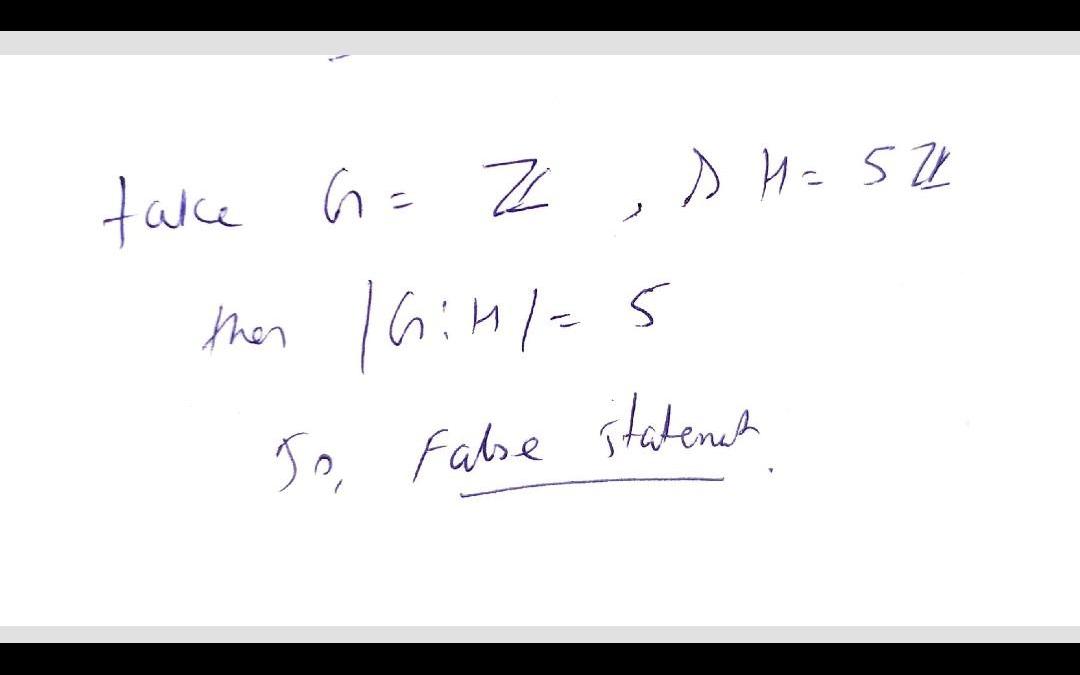 take G = ℤ , & H = 5ℤ
then |G:H| = 5
So, False statement.